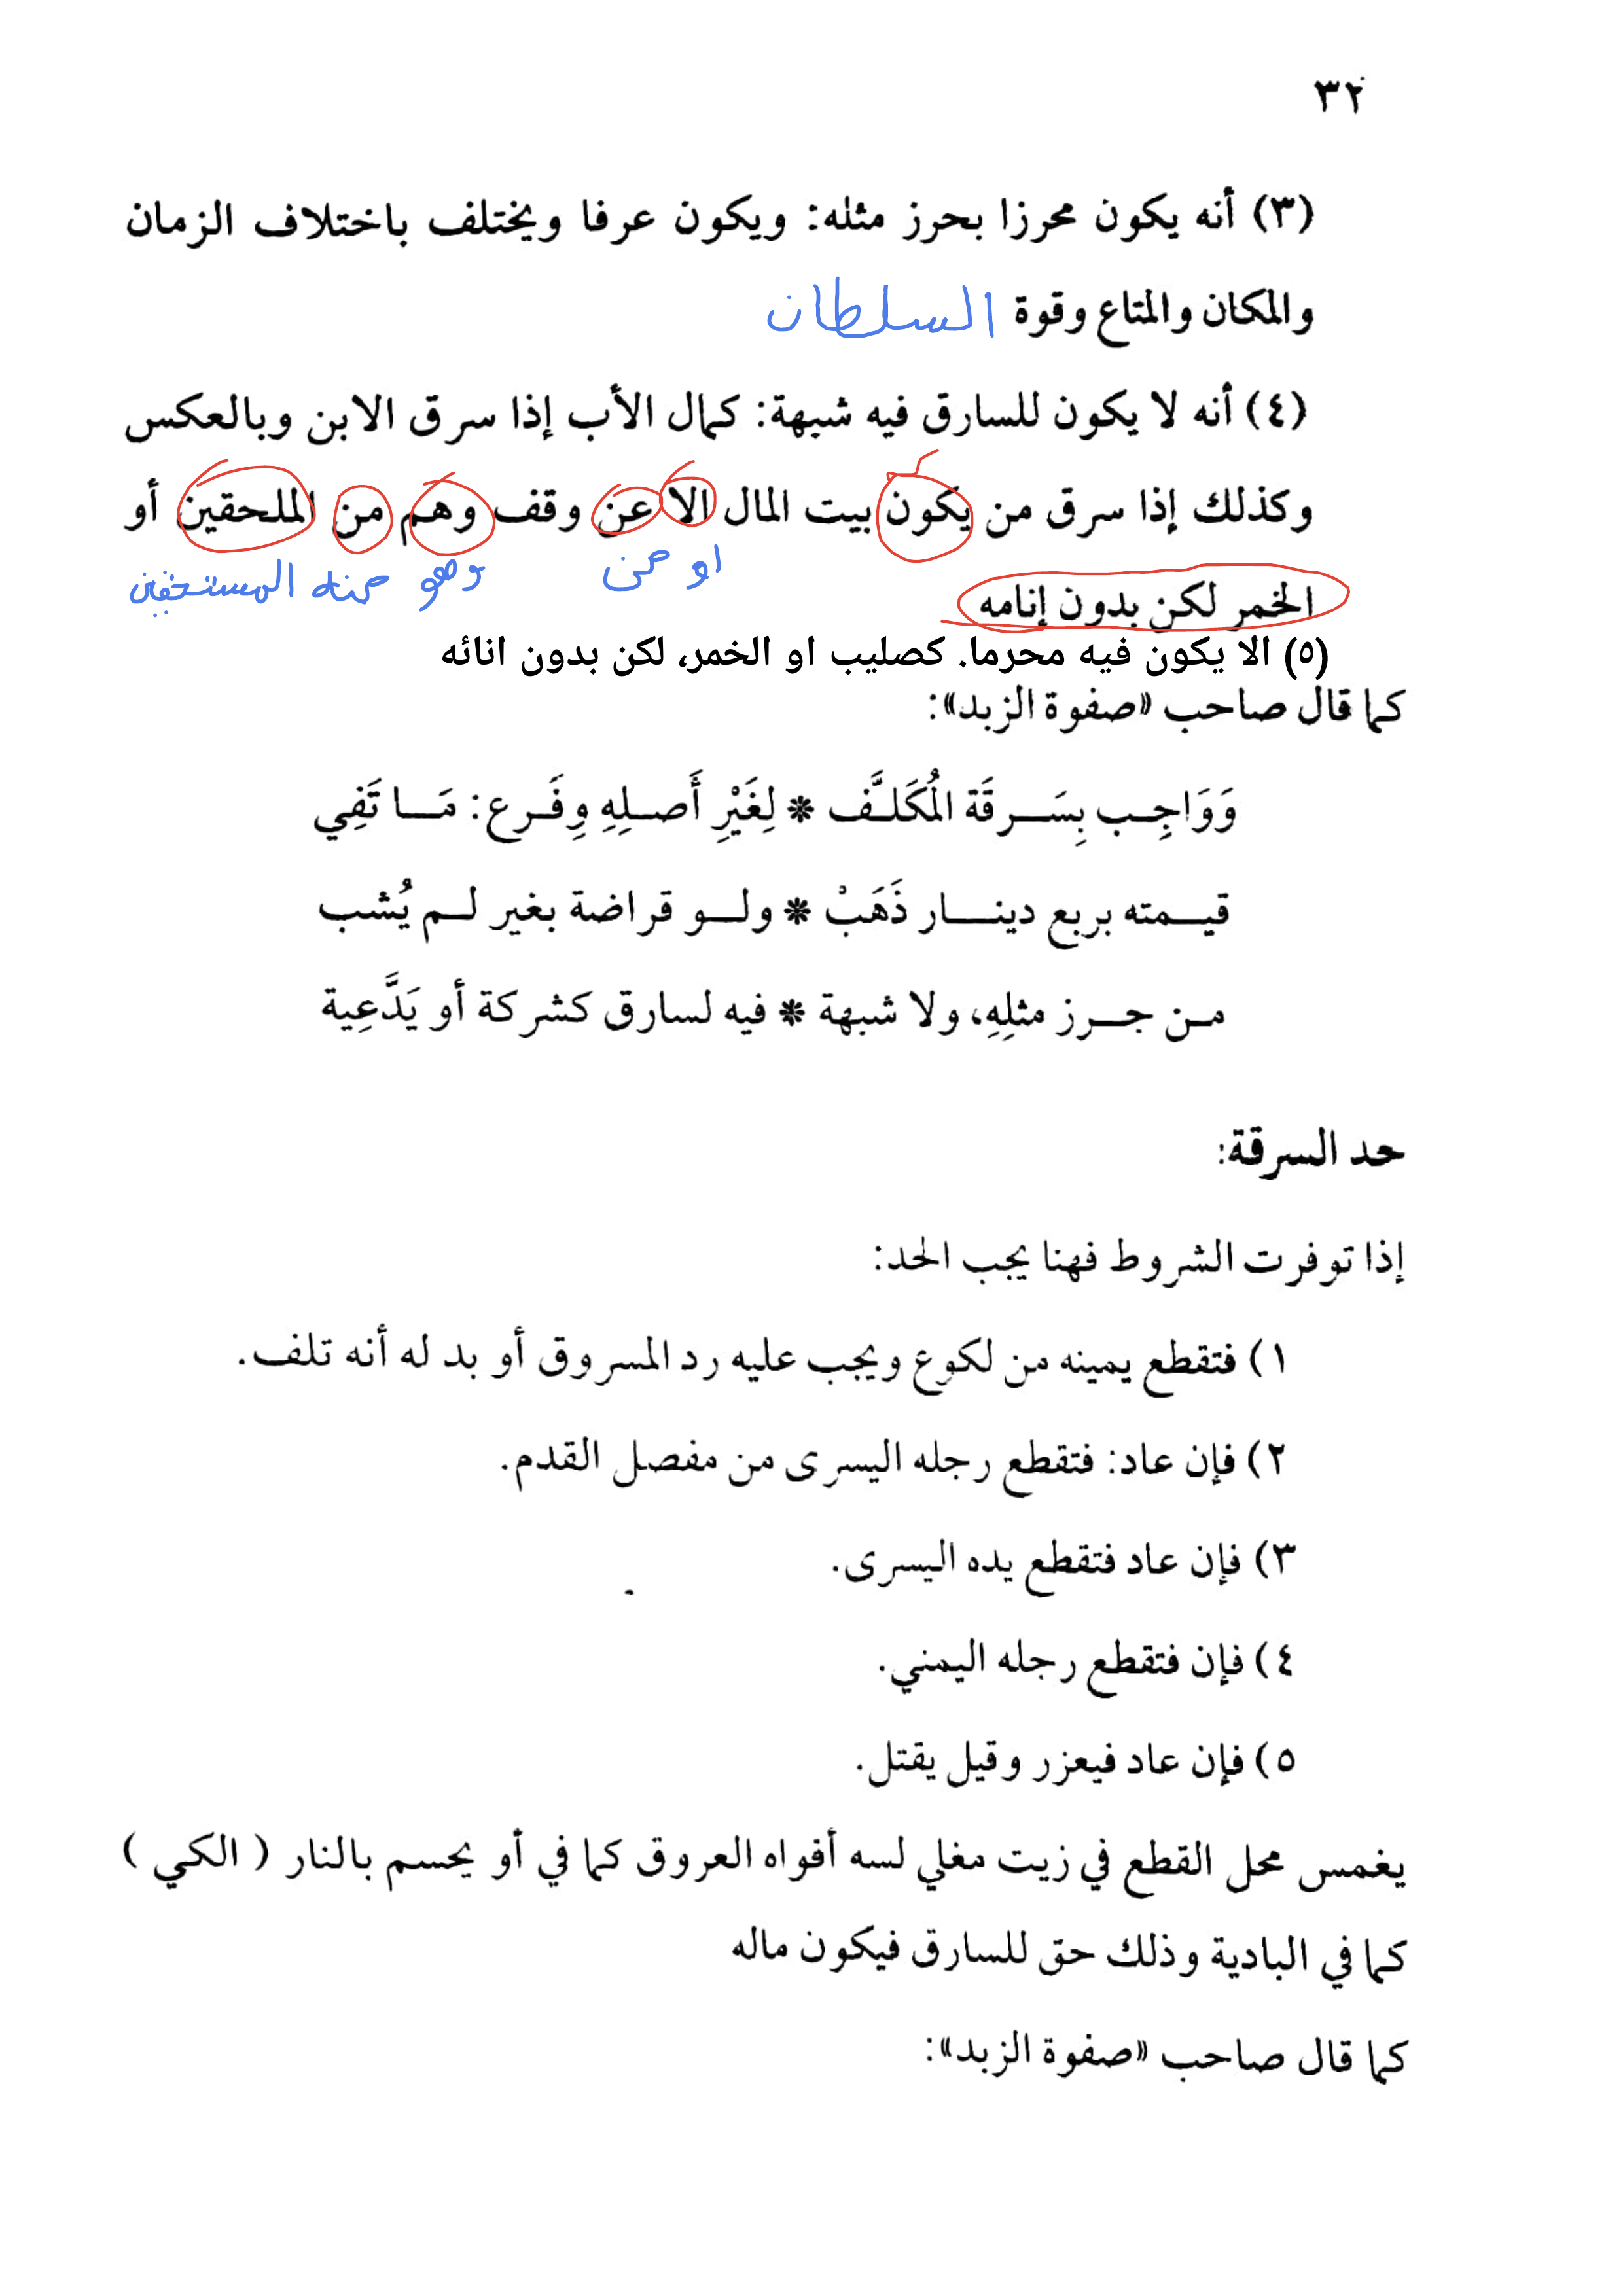 ٣٢
(٣) أنه يكون محرزا بحرز مثله: ويكون عرفا ويختلف باختلاف الزمان
والمكان والمتاع وقوة السلطان
(٤) أنه لا يكون للسارق فيه شبهة: كمال الأب إذا سرق الابن وبالعكس
وكذلك إذا سرق من يكون بيت المال الا عن وقف وهم من الملحقين أو
او من وهو منه المستحقين
الخمر لكن بدون إنامه
(٥) الا يكون فيه محرما. كصليب او الخمر، لكن بدون انائه
كما قال صاحب «صفوة الزبد»:
وَوَاجِب بِسَرِقَة المُكَلَّف * لِغَيْرِ أَصلِهِ وِفَرع: مَا تَفِي
قيمته بربع دينار ذَهَبْ * ولو قراضة بغير لم يُشب
من جرز مثلِهِ، ولا شبهة * فيه لسارق كشركة أو يَدَّعِية
حد السرقة:
إذا توفرت الشروط فهنا يجب الحد:
١) فتقطع يمينه من لكوع ويجب عليه رد المسروق أو بد له أنه تلف.
٢) فإن عاد: فتقطع رجله اليسرى من مفصل القدم.
٣) فإن عاد فتقطع يده اليسرى.
٤) فإن فتقطع رجله اليمني.
٥) فإن عاد فيعزر وقيل يقتل.
يغمس محل القطع في زيت مغلي لسه أفواه العروق كما في أو يحسم بالنار ( الكي )
كما في البادية وذلك حق للسارق فيكون ماله
كما قال صاحب «صفوة الزبد»: